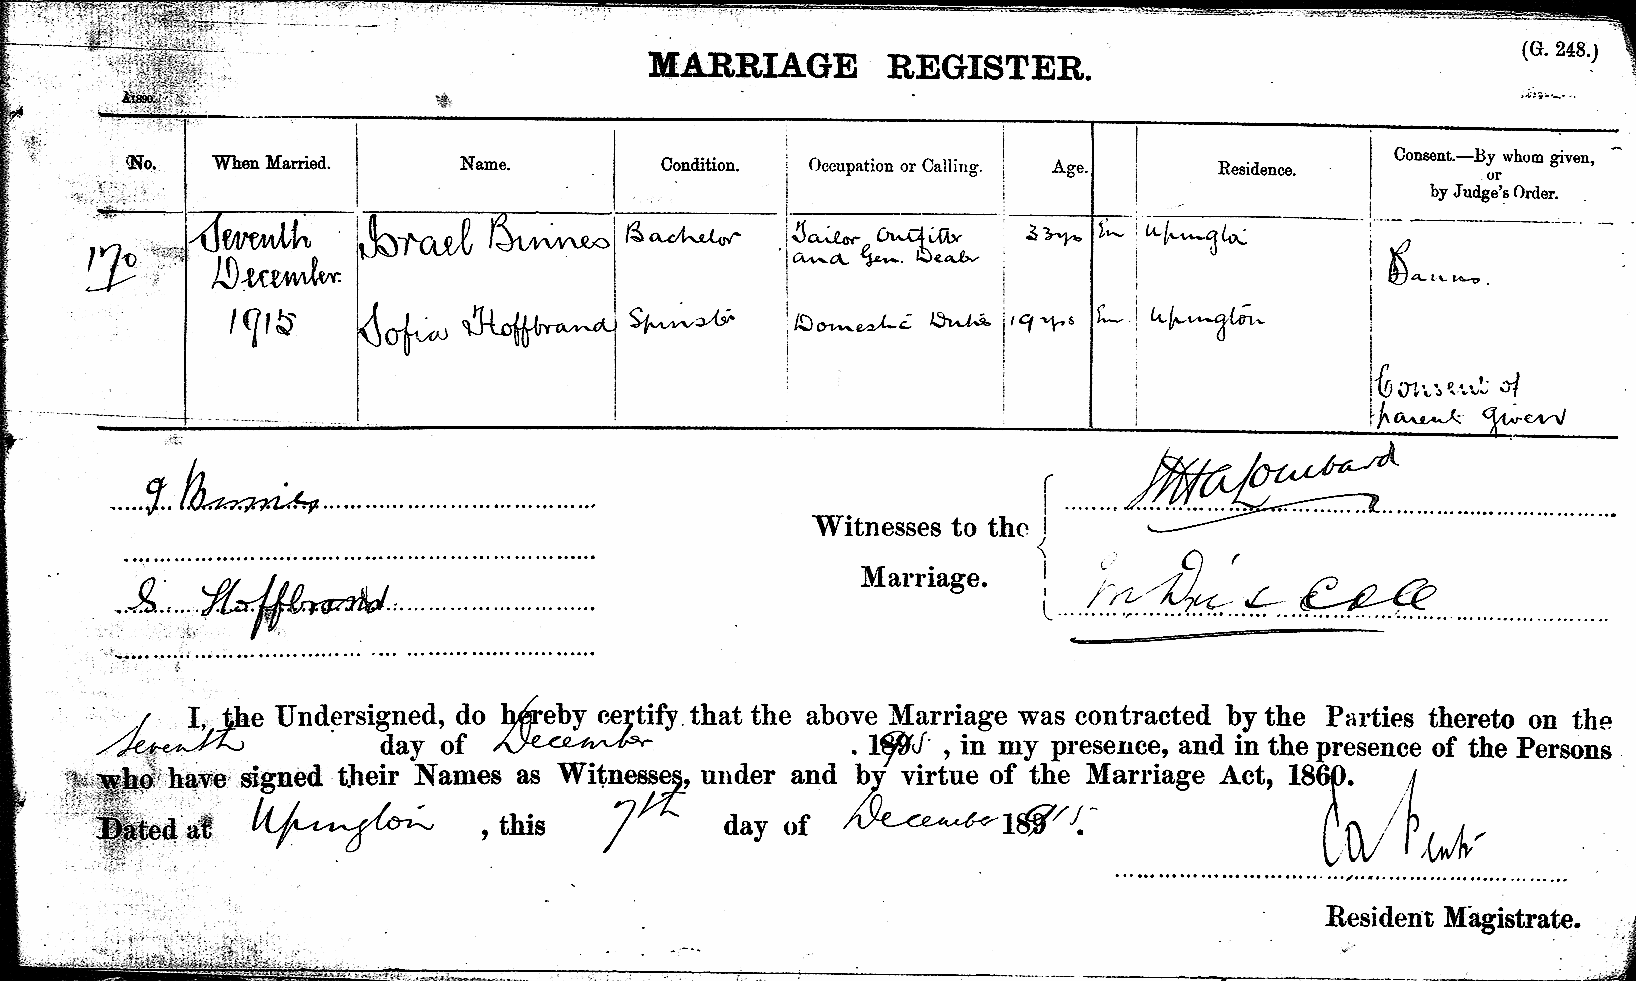 (G. 248.)
MARRIAGE REGISTER.
A1890.
No. When Married. Name. Condition. Occupation or Calling. Age. Residence. Consent.—By whom given, or by Judge's Order.
170 Seventh December 1915
Israel Binnes Bachelor Tailor Outfitter and Gen. Dealer 33 yrs Eur Upington Banns.
Sofia Hoffbrand Spinster Domestic Duties 19 yrs Eur Upington
Consent of
parent given
I. Binnes
S. Hoffbrand
Witnesses to the
Marriage.
Lombard
M Driscoll
I, the Undersigned, do hereby certify that the above Marriage was contracted by the Parties thereto on the
Seventh day of December 1915, in my presence, and in the presence of the Persons
who have signed their Names as Witnesses, under and by virtue of the Marriage Act, 1860.
Dated at Upington, this 7th day of December 1915.
Resident Magistrate.